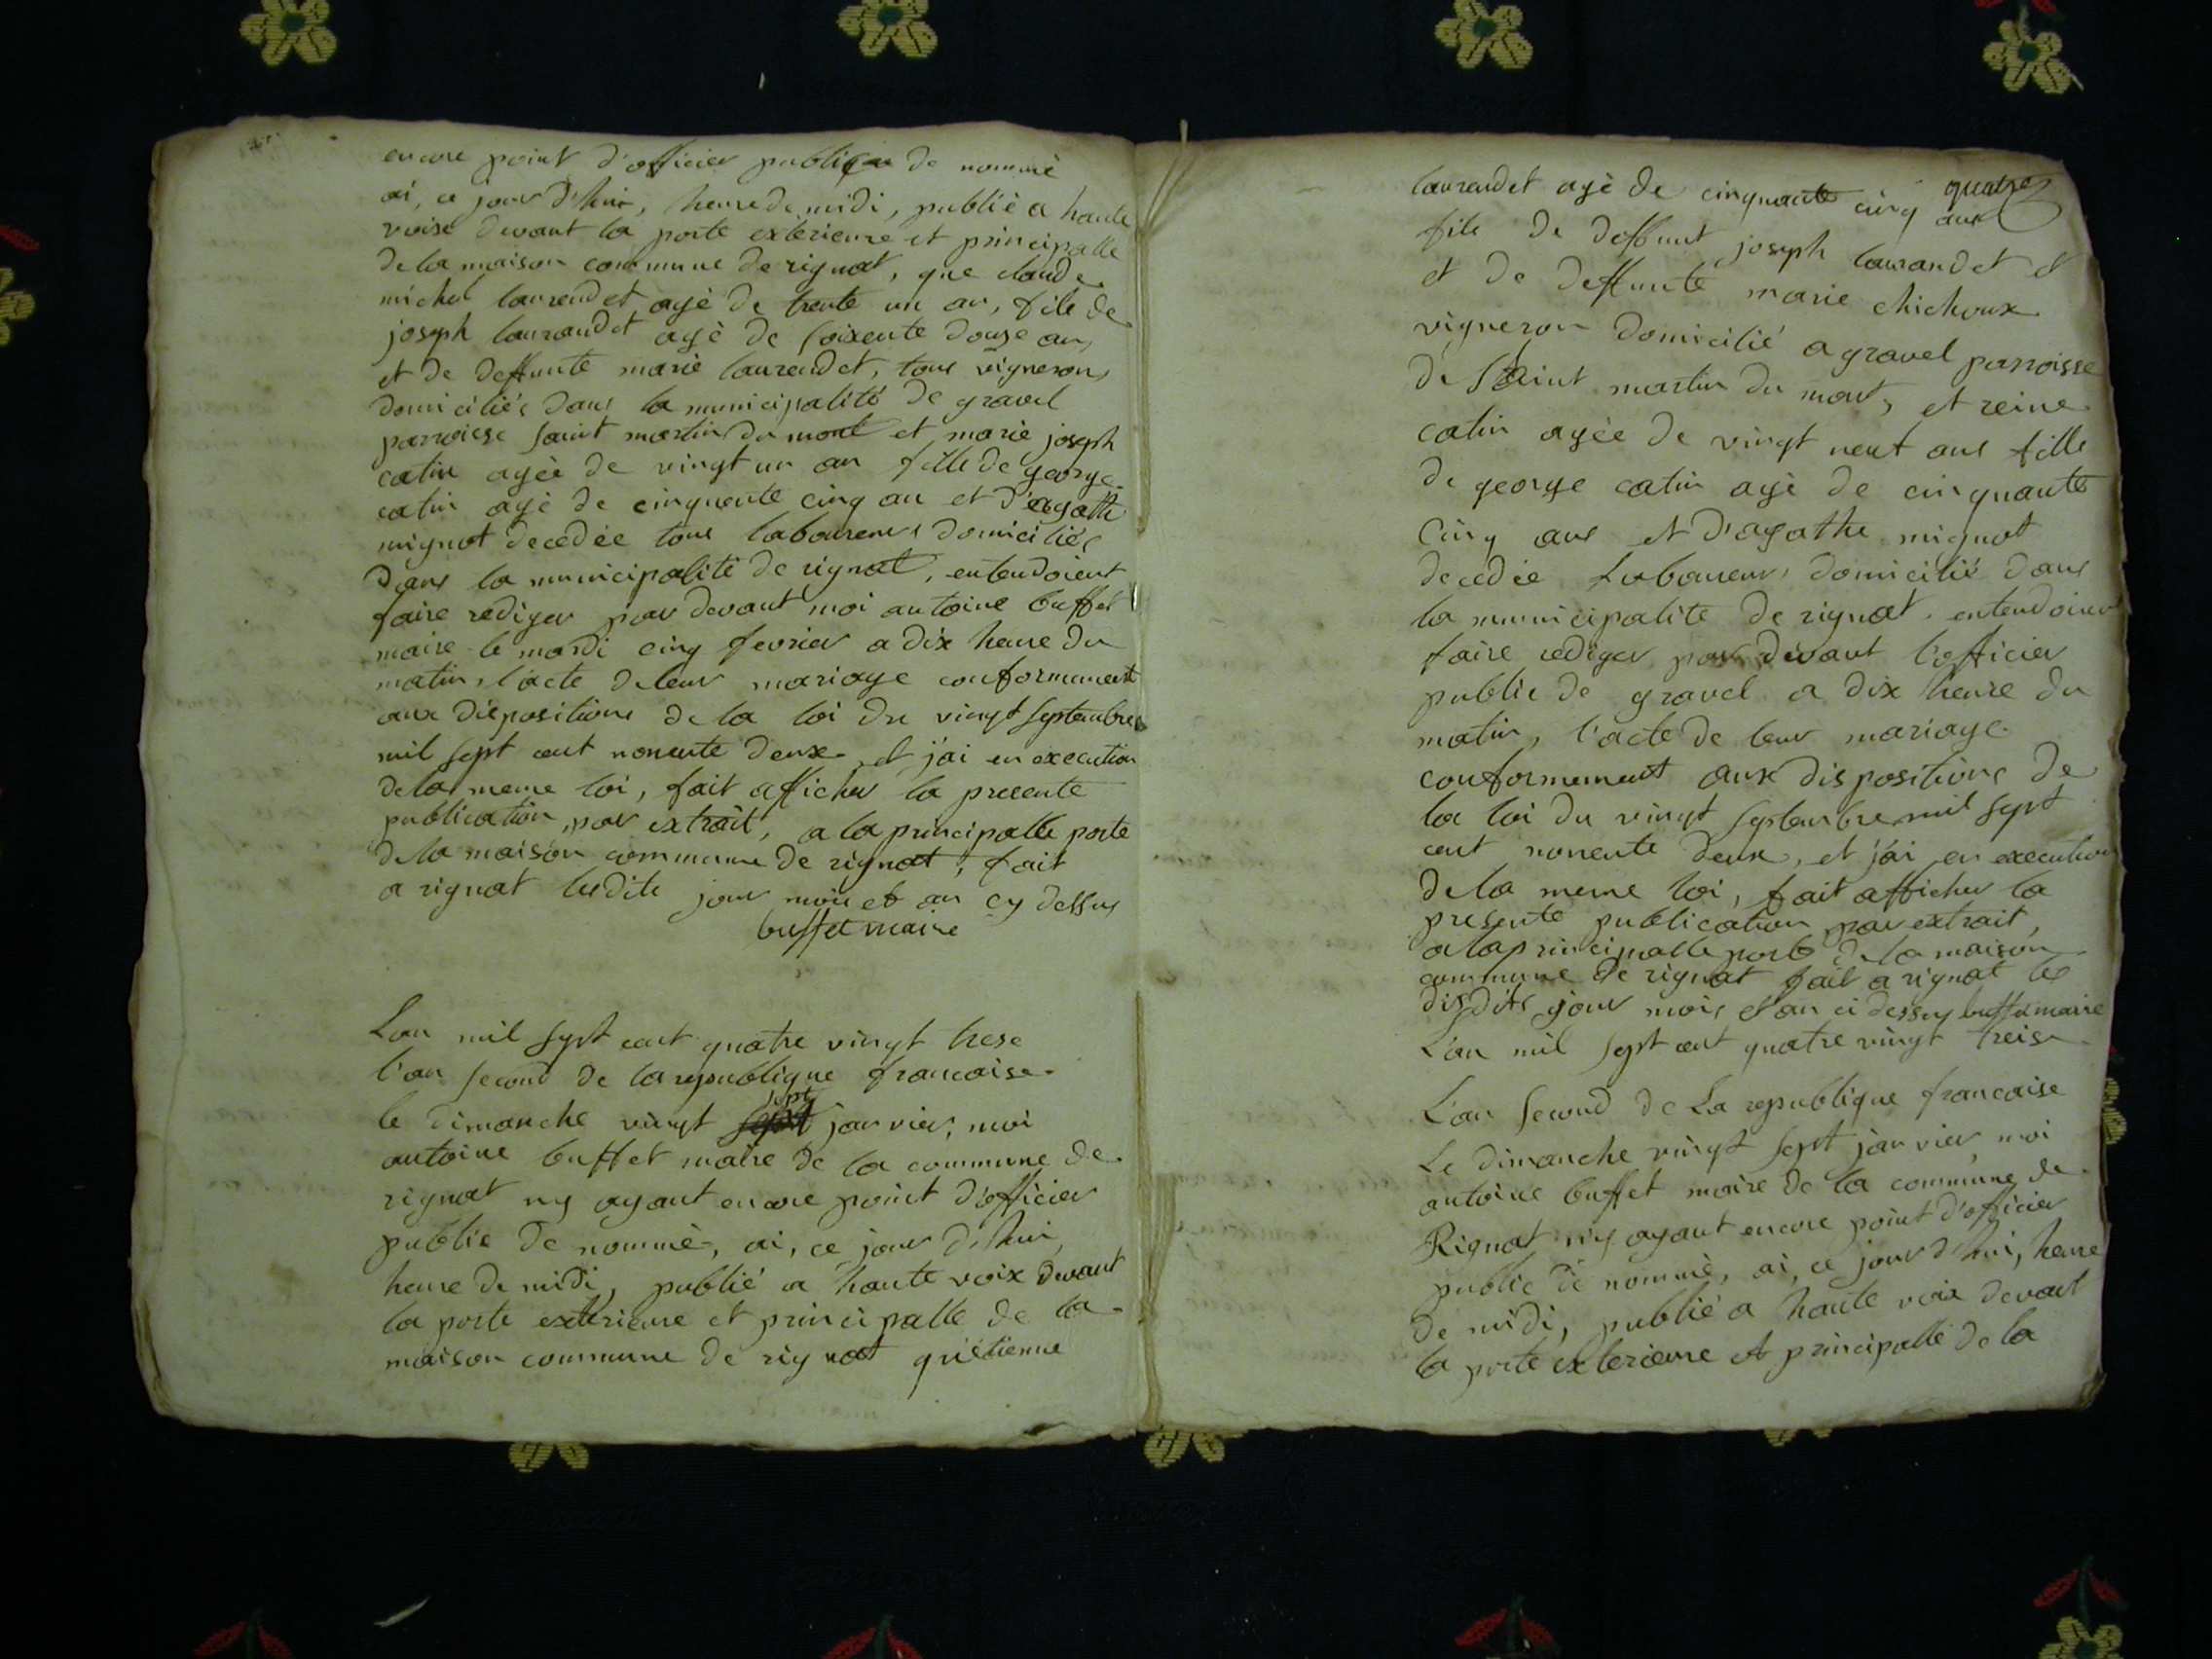 encore point d'officier publique de nommé
ai, ce jour d'hui, heure de midi, publié a haute
voise devant la porte exterieure et principalle
de la maison commune de rignat, que claude
michel laurendet agé de trente un an, fils de
joseph laurandet agé de soixente douze an,
et de deffunte marie laurendet, tous vignerons
domiciliés dans la municipalité de gravel
parroisse saint martin du mont et marie joseph
catin agée de vingt un an fille de george
catin agé de cinquente cinq an et d'agathe
mignot decedée tous laboureurs domiciliés
dans la municipalité de rignat, entendoient
faire rediger par devant moi antoine buffet
maire le mardi cinq fevrier a dix heure du
matin, l'acte de leur mariage conformement
aux dispositions de la loi du vingt septembre
mil sept cent nonente deux et j'ai en execution
de la meme loi, fait afficher la presente
publication, par extrait, a la principalle porte
de la maison commune de rignat, fait
a rignat lesdits jour mois et an cy dessus
buffet maire
Lan mil sept cent quatre vingt trese
l'an second de la republique francaise
le dimanche vingt sept janvier, moi
antoine buffet maire de la commune de
rignat ny ayant encore point d'officier
public de nommé, ai, ce jour d'hui
heure de midi, publié a haute voix devant
la porte exterieure et principalle de la
maison commune de rignat qu'etienne
laurendet agé de cinquante cinq quatre ans
fils de deffunt joseph laurandet et
et de deffunte marie chichoux
vigneron domicilié a gravel parroisse
de saint martin du mont, et reine
catin agée de vingt neuf ans fille
de george catin agé de cinquante
cinq ans et d'agathe mignot
decedée Laboureurs domicilié dans
la municipalite de rignat entendoient
faire rediger par devant l'officier
public de gravel a dix heure du
matin, l'acte de leur mariage
conformement aux dispositions de
la loi du vingt septembre mil sept
cent nonente deux, et j'ai en execution
de la meme loi, fait afficher la
presente publication par extrait,
a la principalle porte de la maison
commune de rignat fait a rignat les
disdits jour mois et an ci dessus buffet maire
L'an mil sept cent quatre vingt treise
L'an second de La republique francaise
Le dimanche vingt sept janvier, moi
antoine buffet maire de la commune de
Rignat n'y ayant encore point d'officier
public de nommé, ai, ce jour d'hui, heure
de midi, publié a haute voix devant
la porte exterieure et principalle de la